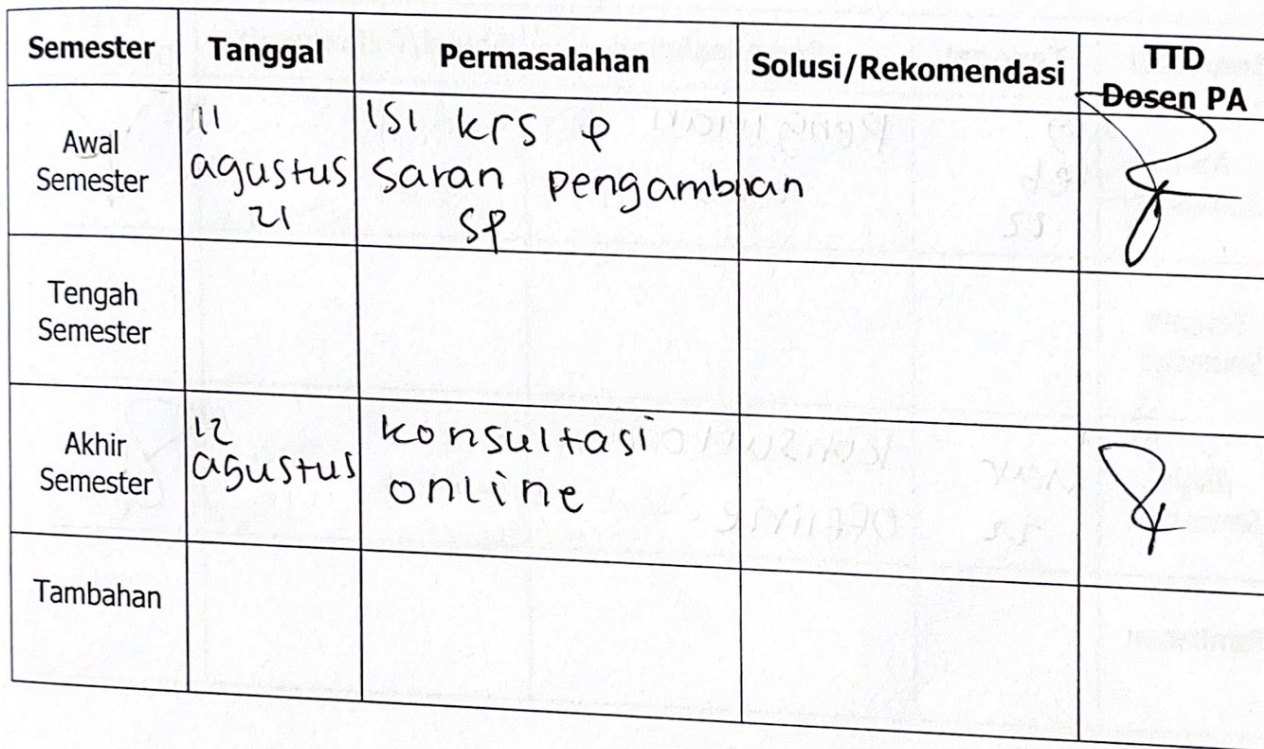 Semester Tanggal Permasalahan Solusi/Rekomendasi TTD
Dosen PA
Awal
Semester
11
agustus
21
Isi krs &
Saran pengambilan
SP
Tengah
Semester
Akhir
Semester
12
agustus
konsultasi
online
Tambahan